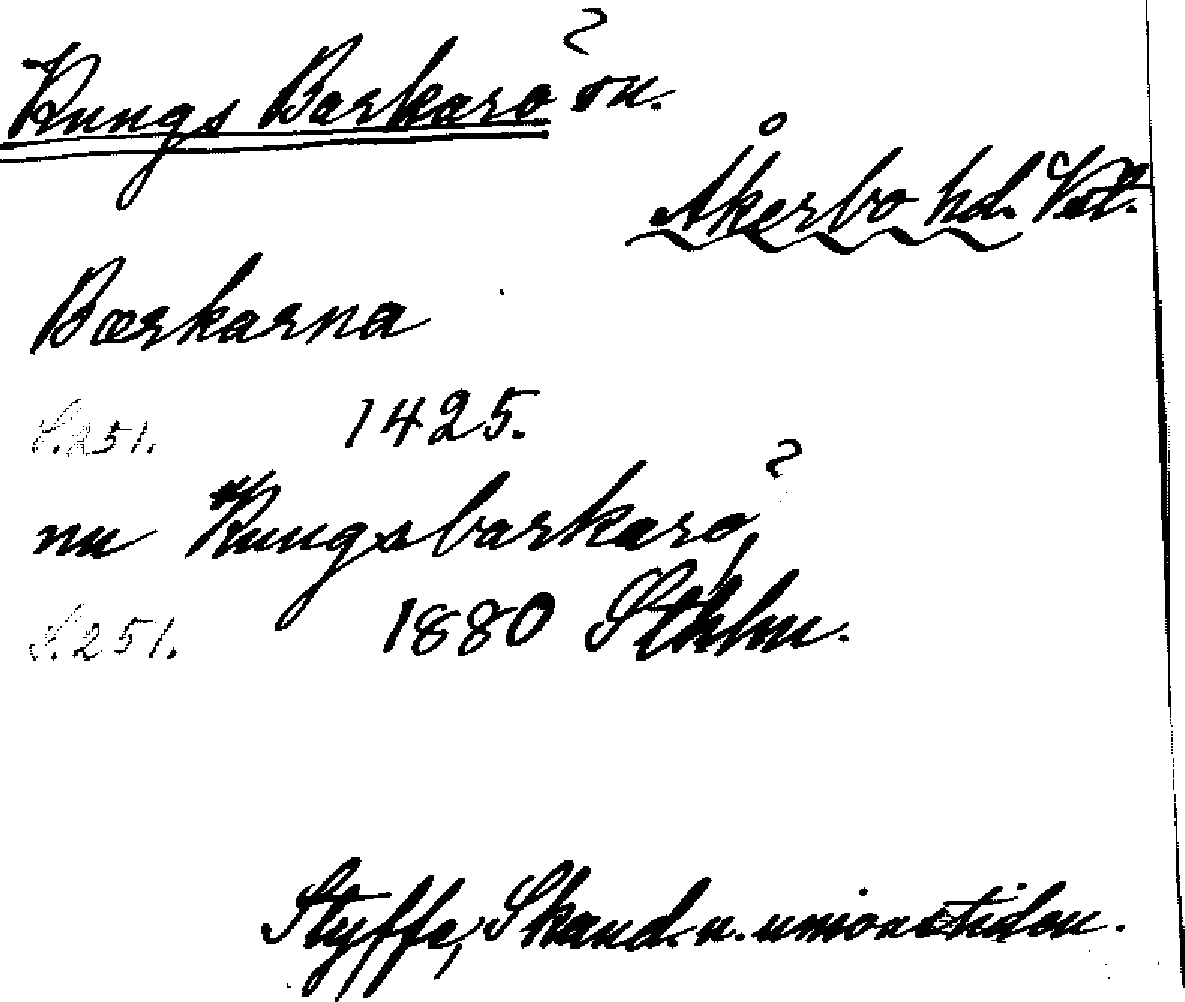 Kungs Barkarö sn.
Åkerbo hd. Vstl.
Bærkarna
S. 251. 1425.
nu Kungsbarkarö,
S. 251. 1880 Sthlm.
Styffe, Skand. u. unionstiden.